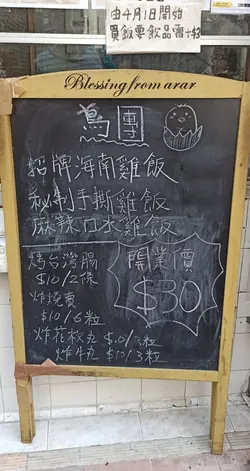 由4月1日開始
買飯票飲品需+$2
Blessing from arar
鳥團
招牌海南雞飯
秘制手撕雞飯
麻辣口水雞飯
烤台灣腸
$10/2條
炸燒賣
$10/6粒
炸花枝丸 $10/2粒
炸牛丸 $10/3粒
開業價
$30